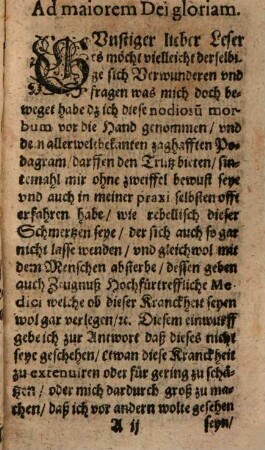 Ad maiorem Dei gloriam.
GUnstiger lieber Leser
es möcht vielleicht derselbi-
ge sich Verwunderen vnd
fragen was mich doch be-
weget habe dz ich diese nodiosū mor-
bum vor die Hand genommen / vnd
dem allerweltbekanten zaghafften Po-
dagram / darffen den Trutz bieten / sin-
temahl mir ohne zweiffel bewust seye
vnd auch in meiner praxi selbsten offt
erfahren habe / wie rebellisch dieser
Schmertzen seye / der sich auch so gar
nicht lasse wenden / vnd gleichwol mit
dem Menschen absterbe / dessen geben
auch Zeugnuß Hochfürtreffliche Me-
dici welche ob dieser Kranckheit seyen
wol gar verlegen / ꝛc. Diesem einwurff
gebe ich zur Antwort daß dieses nicht
seye geschehen / Etwan diese Kranckheit
zu extenuiren oder für gering zu schä-
tzen / oder mich dardurch groß zu ma-
chen / daß ich vor andern wolte gesehen
A ij seyn /